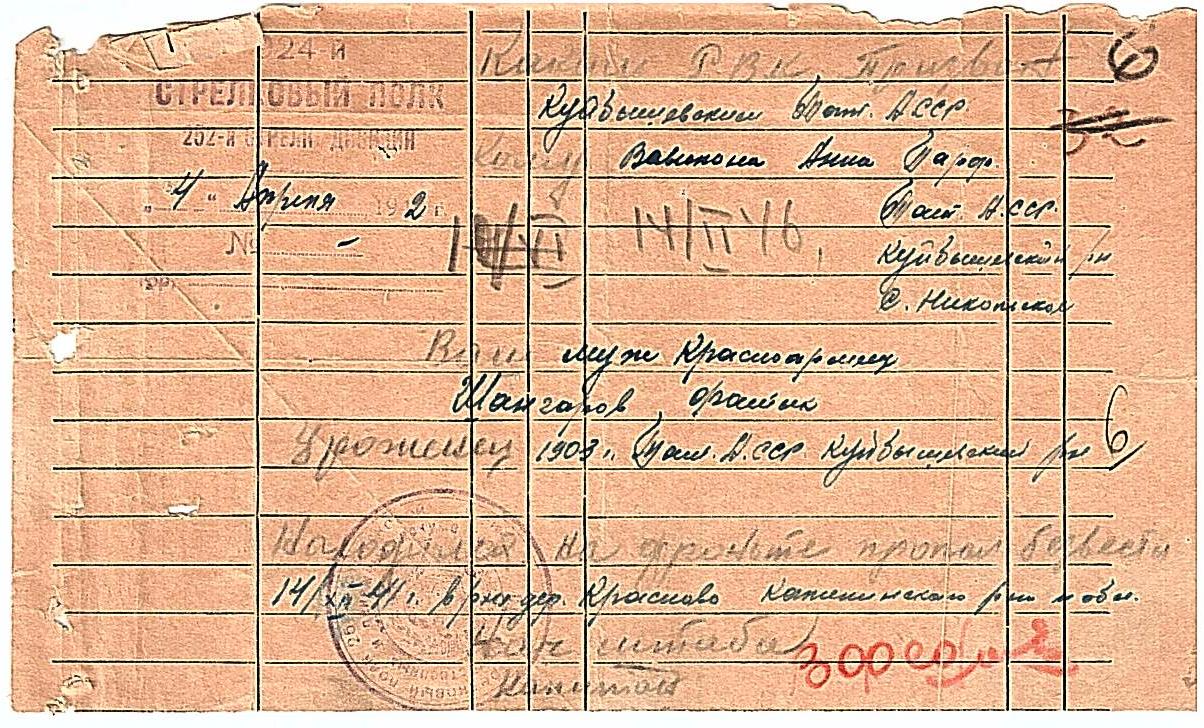 924-й
СТРЕЛКОВЫЙ ПОЛК
252-й СТРЕЛК ДИВИЗИИ
"4" Апреля 1942 г.
№ –
Каким Р.В.К. Призван
Куйбышевским Тат. АССР
6
Кому Вавилова Анна
Тат. АССР.
Куйбышевский р-н
С. Никольское
14/VI 14/II 46.
Ваш муж Красноармеец
Шангаров Фатык
Уроженец 1903 г. Тат. АССР Куйбышевский р-н 6
Находился на фронте пропал безвести
14/XII 41 г. в р-не дер. Красново Калининского р-на и обл.
Нач штаба
Капитан